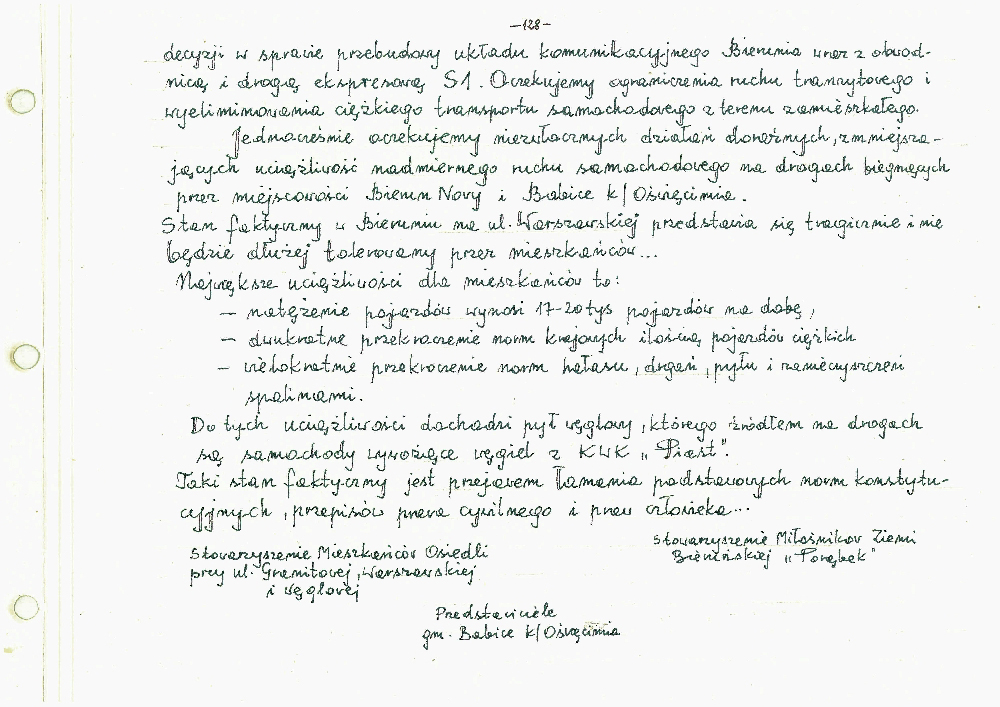 -128-
decyzji w sprawie przebudowy układu komunikacyjnego Bierunia wraz z obwod-
nicą i drogą ekspresową S1. Oczekujemy ograniczenia ruchu tranzytowego i
wyeliminowania ciężkiego transportu samochodowego z terenu zamieszkałego.
Jednocześnie oczekujemy niezwłocznych działań doraźnych, zmniejsza-
jących uciążliwość nadmiernego ruchu samochodowego na drogach biegnących
przez miejscowości Bieruń Nowy i Babice k/Oświęcimia.
Stan faktyczny w Bieruniu na ul. Warszawskiej przedstawia się tragicznie i nie
będzie dłużej tolerowany przez mieszkańców...
Największe uciążliwości dla mieszkańców to:
- natężenie pojazdów wynosi 17-20 tys pojazdów na dobę,
- dwukrotne przekroczenie norm krajowych ilością pojazdów ciężkich
- wielokrotnie przekroczenie norm hałasu, drgań, pyłu i zanieczyszczeń
spalinami.
Do tych uciążliwości dochodzi pył węglowy, którego źródłem na drogach
są samochody wywożące węgiel z KWK "Piast".
Taki stan faktyczny jest przejawem łamania podstawowych norm konstytu-
cyjnych, przepisów prawa cywilnego i praw człowieka...
Stowarzyszenie Miłośników Ziemi
Bieruńskiej "Porąbek"
Stowarzyszenie Mieszkańców Osiedli
przy ul. Granitowej, Warszawskiej
i Węglowej
Przedstawiciele
gm. Babice k/Oświęcimia